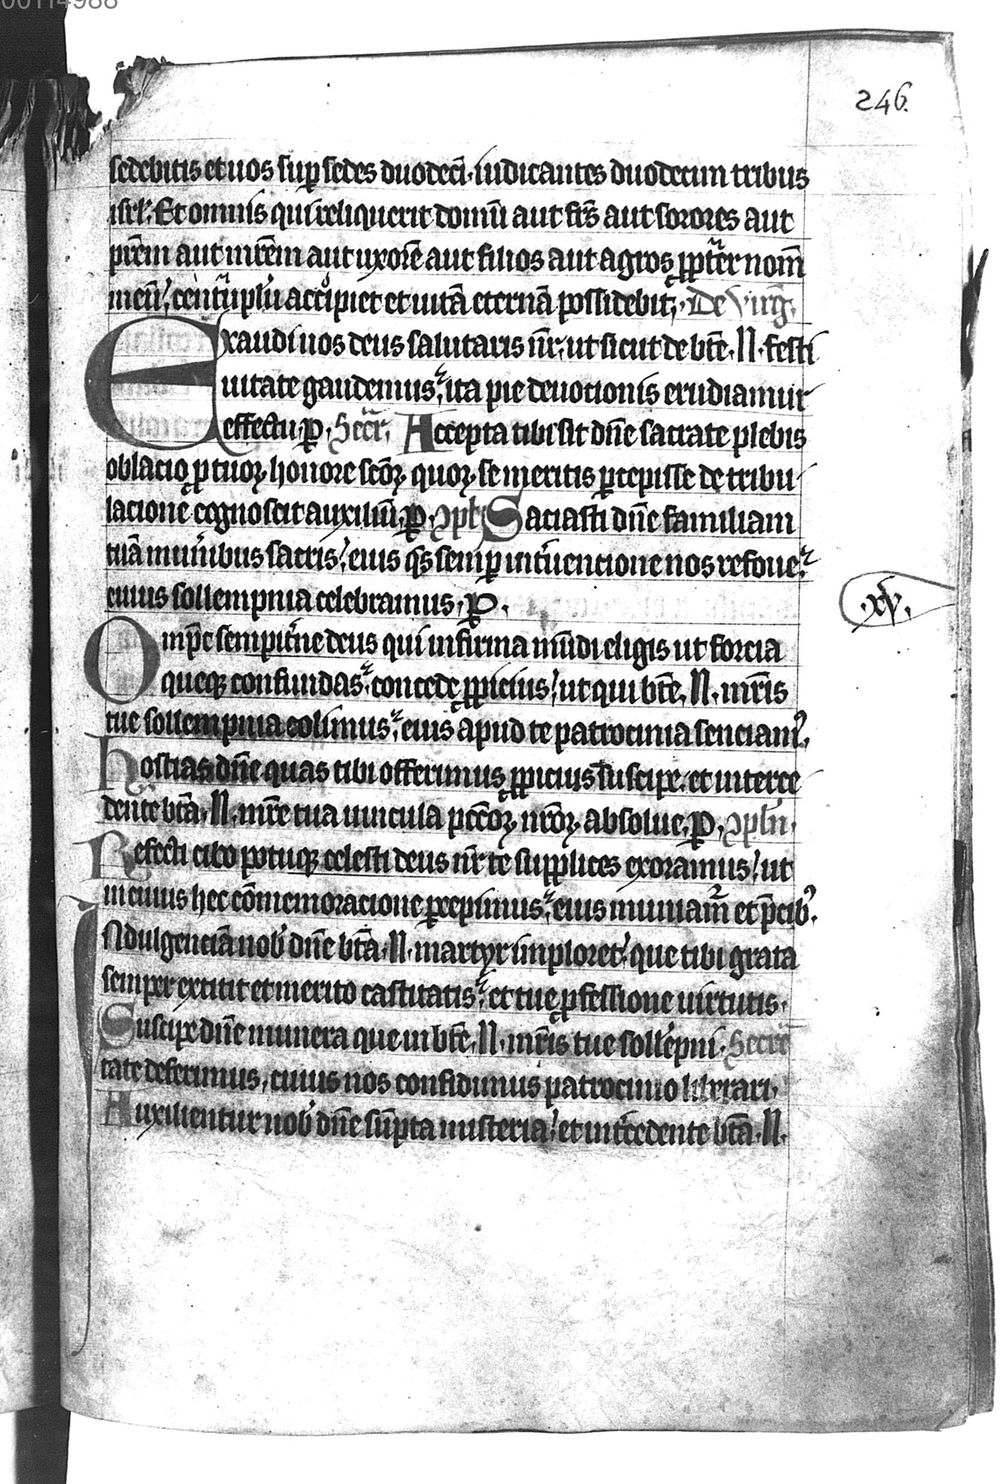 00114988
246.
sedebitis et uos suꝑ sedes duodecī. iudicantes duodecim tribus
isrl̄. Et omnis qui reliquerit domū aut frēs aut sorores aut
prēm aut mrēm aut uxorē aut filios aut agros ꝓpter nom̄
meū. centuplū accipiet et uitā eternā possidebit. De Uirḡ.
Exaudi nos deus salutaris nr̄. ut sicut de btē .N. festi
uitate gaudemus. ita pie deuotionis erudiamur
effectu. ꝑ. Secr̄. Accepta tibi sit dn̄e sacrate plebis
oblacio ꝓ tuoꝝ honore scōꝝ quoꝝ se meritis ꝑcepisse de tribu
lacione cognoscit auxiliū. ꝑ. ꝯpl̄. Saciasti dn̄e familiam
tuā munībus sacris. eius qs̄ semꝑ int̄uencione nos refoue.
cuius sollempnia celebramus. ꝑ.
.xv.
Omp̄e sempit̄ne deus qui infirma mūdi eligis ut forcia
queqꝫ confundas. concede ꝓpicius. ut qui btē .N. mr̄is
tue sollempnia colimus. eius apud te patrocinia senciam᷒.
Hostias dn̄e quas tibi offerimus ꝓpicius suscipe. et interce
dente btā .N. mr̄e tua uincula pcc̄oꝝ nr̄oꝝ absolue. ꝑ. ꝯpln̄.
Refecti cibo potuqꝫ celesti deus nr̄ te supplices exoramus. ut
in cuius hec cōmemoracione ꝑcepimus. eius muniam̄ et p̄cib᷒.
Indulgenciā nob̄ dn̄e btā .N. martyr imploret. que tibi grata
semper extitit et merito castitatis. et tue ꝓfessione uirtutis.
Suscipe dn̄e munera que in btē .N. mr̄is tue sollēpni. Secrē
tate deferimus. cuius nos confidimus patrocinio liberari.
Auxilientur nob̄ dn̄e sūpta misteria. et int̄cedente btā .N.